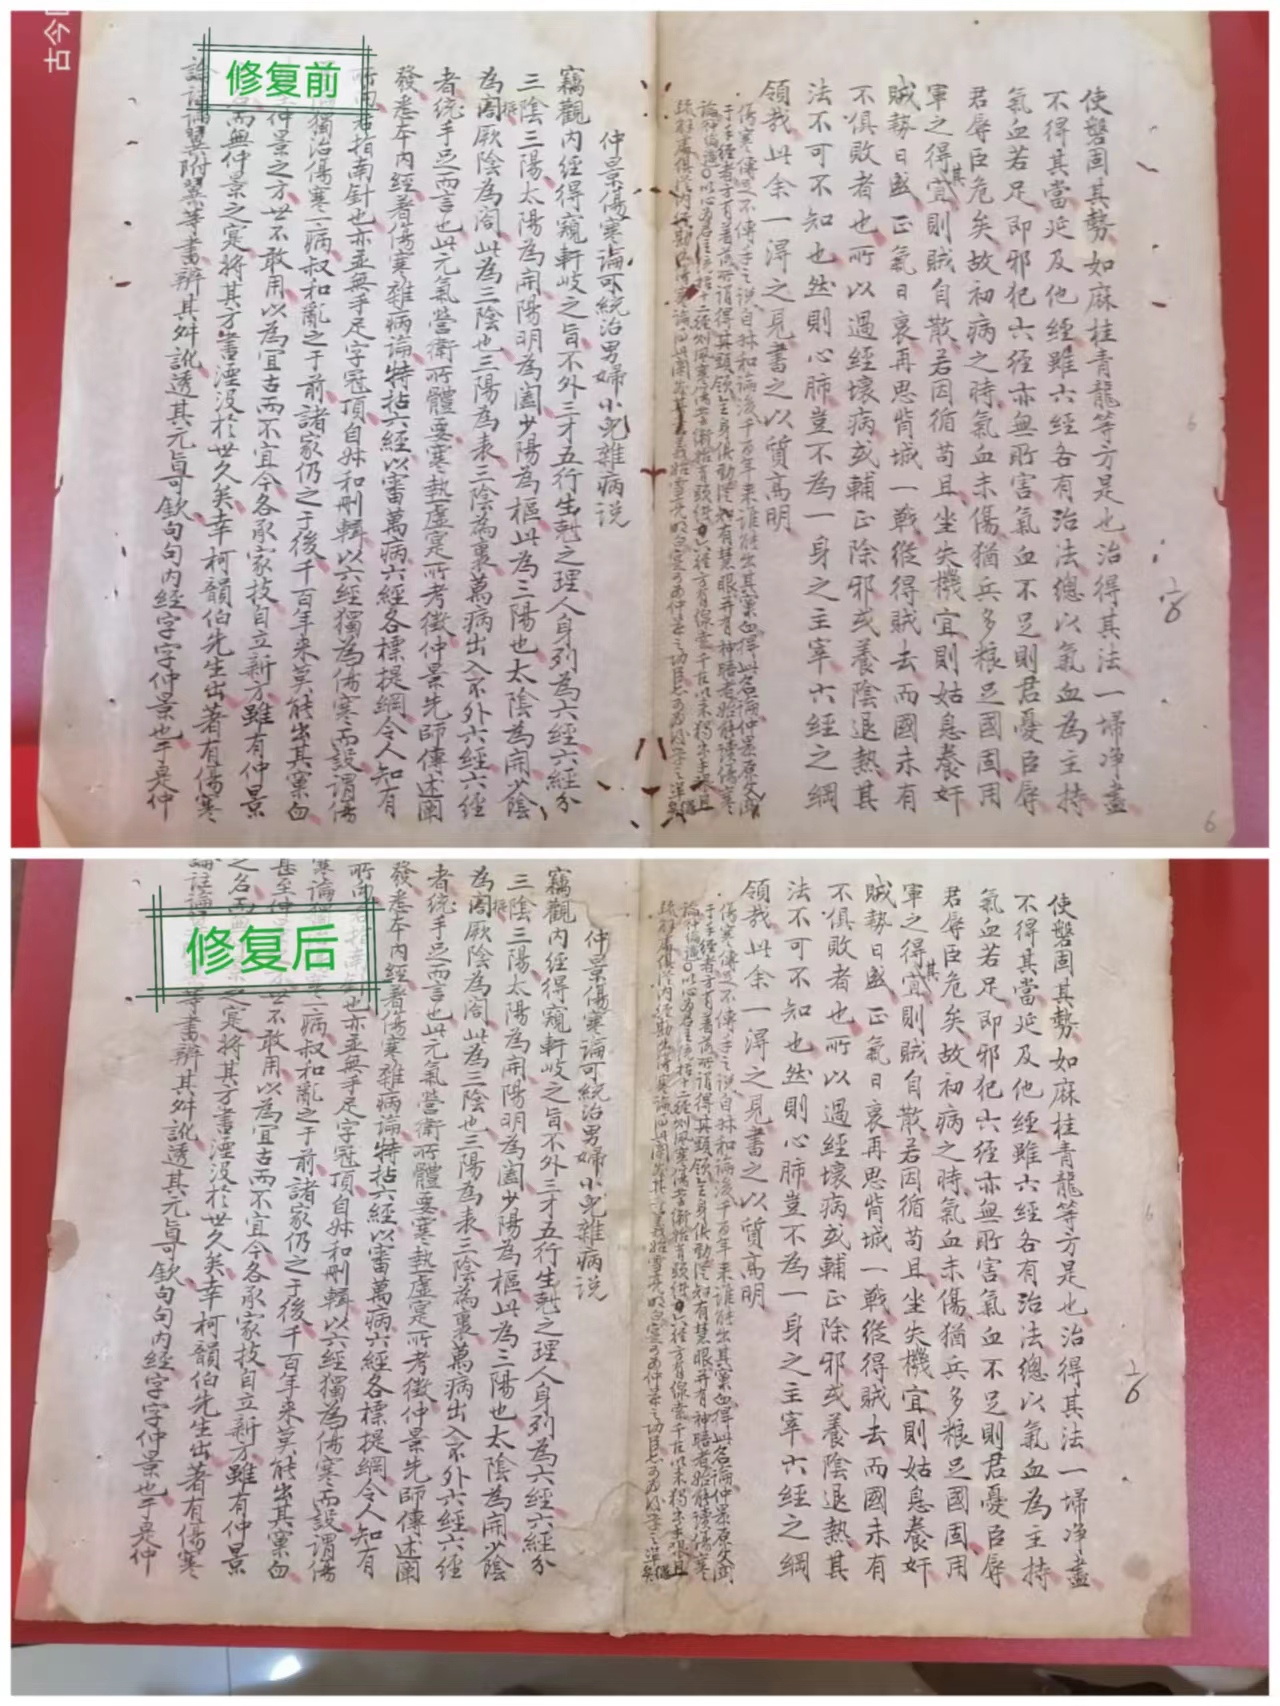 古今
修复前
使磐固其勢如麻桂青龍等方是也治得其法一埽净盡
不得其當延及他經雖六經各有治法總以氣血為主持
氣血若足即邪犯六經亦無所害氣血不足則君憂臣辱
君辱臣危矣故初病之時氣血未傷猶兵多粮足國固用
軍之得其宜則賊自散若因循苟且坐失機宜則姑息養奸
賊勢日盛正氣日衰再思背城一戰縱得賊去而國未有
不俱敗者也所以過經壞病或輔正除邪或養陰退熱其
法不可不知也然則心肺豈不為一身之主宰六經之綱
領哉此余一得之見書之以質高明
傷寒傳足不傳手之說自林和論後千百年来誰能出其窠臼得此名論仲景原文
于手經者方有著落所謂得其頭領全身俱動從有慧眼并有神晤者始能讀傷寒
仲景傷寒論可統治男婦小兒雜病説
竊觀内經得窺軒岐之旨不外三才五行生尅之理人身列為六經六經分
三陰三陽太陽為開陽明為闔少陽為樞此為三陽也太陰為開少陰
為樞厥陰為闔此為三陰也三陽為表三陰為裏萬病出入不外六經六經
者統手足而言也此元氣營衛所體要寒熱虛寔所考徵仲景先師傳述闡
發悉本内經著傷寒雜病論特拈六經以審萬病六經各標提綱令人知有
所向若指南針也亦並無手足字冠頂自叔和刪輯以六經獨為傷寒而設謂傷
獨治傷寒一病叔和亂之于前諸家仍之于後千百年来莫能出其窠臼
仲景之方世不敢用以為宜古而不宜今各承家技自立新方雖有仲景
而無仲景之寔將其方書湮没於世久矣幸柯韻伯先生出著有傷寒
論註論翼附翼等書辨其舛訛透其元眞可欽句句内經字字仲景也于是仲
6
修复后
使磐固其勢如麻桂青龍等方是也治得其法一埽净盡
不得其當延及他經雖六經各有治法總以氣血為主持
氣血若足即邪犯六經亦無所害氣血不足則君憂臣辱
君辱臣危矣故初病之時氣血未傷猶兵多粮足國固用
軍之得其宜則賊自散若因循苟且坐失機宜則姑息養奸
賊勢日盛正氣日衰再思背城一戰縱得賊去而國未有
不俱敗者也所以過經壞病或輔正除邪或養陰退熱其
法不可不知也然則心肺豈不為一身之主宰六經之綱
領哉此余一得之見書之以質高明
傷寒傳足不傳手之說自林和論後千百年来誰能出其窠臼得此名論仲景原文
于手經者方有著落所謂得其頭領全身俱動從知有慧眼并有神晤者始能讀傷寒
仲景傷寒論可統治男婦小兒雜病説
竊觀内經得窺軒岐之旨不外三才五行生尅之理人身列為六經六經分
三陰三陽太陽為開陽明為闔少陽為樞此為三陽也太陰為開少陰
為樞厥陰為闔此為三陰也三陽為表三陰為裏萬病出入不外六經六經
者統手足而言也此元氣營衛所體要寒熱虛寔所考徵仲景先師傳述闡
發悉本内經著傷寒雜病論特拈六經以審萬病六經各標提綱令人知有
所向若指南針也亦並無手足字冠頂自叔和刪輯以六經獨為傷寒而設謂傷
寒論一病叔和亂之于前諸家仍之于後千百年来莫能出其窠臼
甚至仲世不敢用以為宜古而不宜今各承家技自立新方雖有仲景
之名而無之寔將其方書湮没於世久矣幸柯韻伯先生出著有傷寒
論註論等書辨其舛訛透其元眞可欽句句内經字字仲景也于是仲